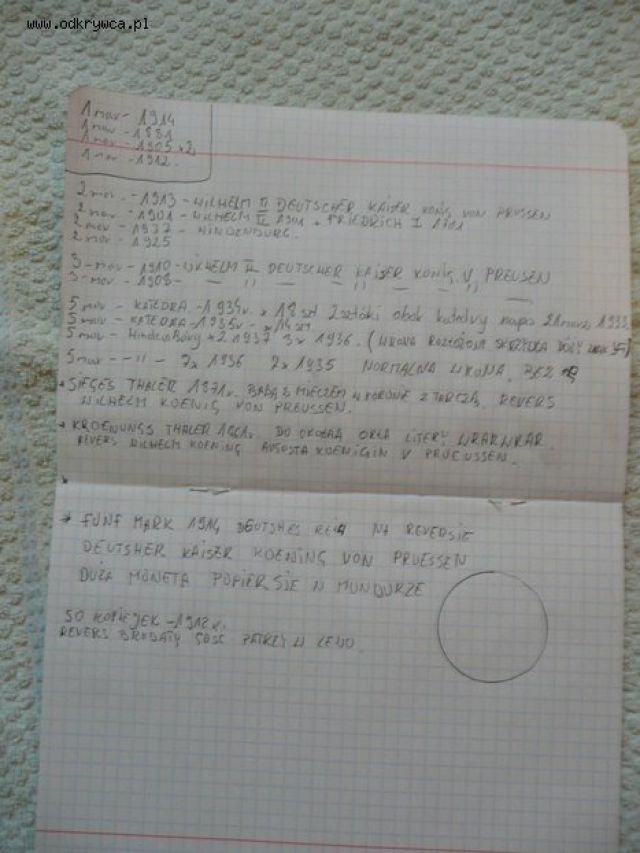 www.odkrywca.pl
1 mar - 1914
1 mar - 1881
1 mar - 1905 x 2
1 mar - 1912.
2 mar. - 1913 - WILHELM II DEUTSCHER KAISER KÖNIG VON PRUSSEN
2 mar - 1901 - WILHELM II 1901 + FRIEDRICH I 1701
2 mar - 1937 - HINDENBURG.
2 mar - 1925
3 - mar - 1910 - WILHELM II DEUTSCHER KAISER KONIG. V. PREUSEN
3 - mar - 1908 - — 11 — — 11 — 11 — 11 —
5 mar - KATEDRA - 1934r. x 18 szt 2 sztuki obok katedry napis 21 marz 1933
5 mar - KATEDRA - 1935r - x 14 szt
5 mar - x 2 1937 3x 1936. ( WRONA SKRZYDŁA DUŻY
5 mar - - 11 - 7x 1936 2x 1935 NORMALNA WRONA, BEZ 卐
* SIEGES THALER 1871r. BABA Z MIECZEM W KORONIE Z TARCZĄ, REVERS
WILHELM KOENIG VON PREUSSEN.
* KROENUNGS THALER DO OKOŁA ORŁA LITERY WRAWRAR.
REVERS WILHELM KOENING AUGUSTA KOENIGIN V PRUEUSSEN.
* FUNF MARK 1914 DEUTSHES REIH NA REVERSIE
DEUTSHER KAISER KOENING VON PRUESSEN
DUŻA MONETA POPIERSIE N MUNDURZE
50 KOPIEJEK - 1912 r.
REVERS BRODATY GOŚĆ PATRZY W LEWO.